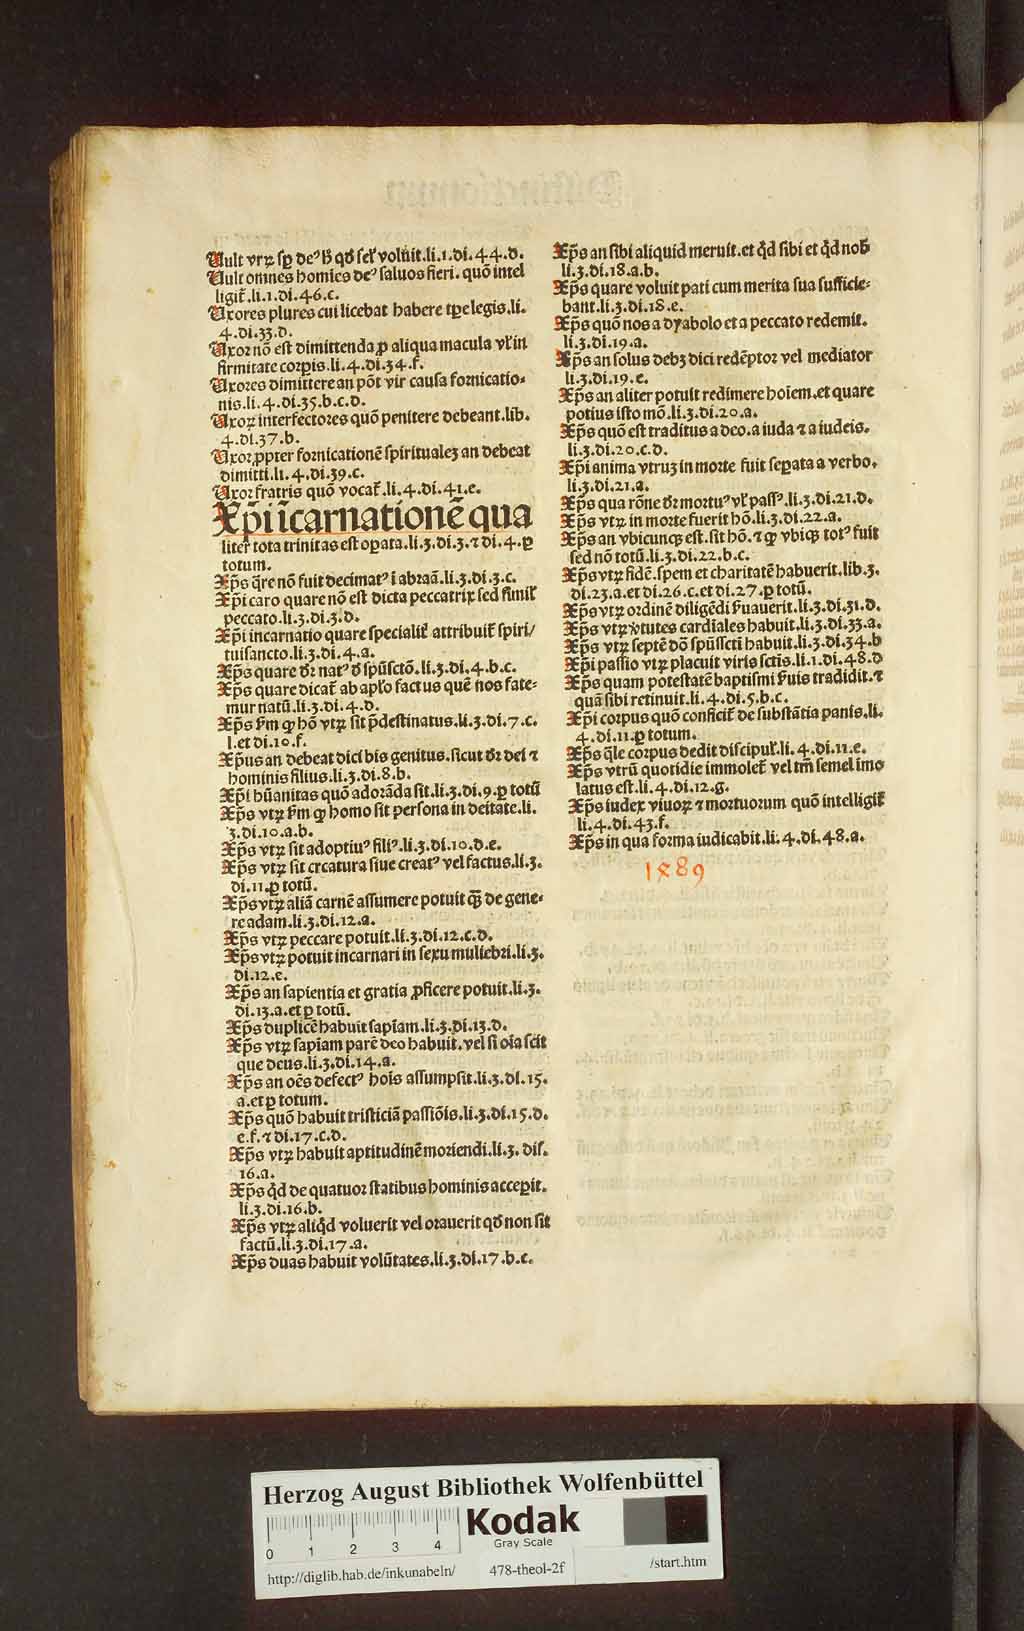 Vult vtrꝫ sꝑ deꝰ ꝙ sel voluit.li.1.di.44.d.
Vult omnes homies deꝰ saluos fieri. quō intel
ligit̄.li.1.di.46.c.
Uxores plures cui licebat habere tꝑe legis.li.
4.di.33.d.
Uxor nō est dimittenda ꝓ aliqua macula vl̓ in
firmitate corpis.li.4.di.34.f.
Uxores dimittere an pōt vir causa fornicatio-
nis.li.4.di.35.b.c.d.
Uxorꝝ interfectores quō penitere debeant.lib.
4.di.37.b.
Uxor ꝓpter fornicationē spiritualeꝫ an debeat
dimitti.li.4.di.39.c.
Uxor fratris quō vocat̄.li.4.di.41.e.
Xp̄i īcarnationē qua
liter tota trinitas est oꝑata.li.3.di.3.⁊ di.4.ꝑ
totum.
Xp̄s q̄re nō fuit decimatꝰ ī abraā.li.3.di.3.c.
Xp̄i caro quare nō est dicta peccatrix sed simil̓
peccato.li.3.di.3.d.
Xp̄i incarnatio quare specialit̓ attribuit̄ spiri/
tuisancto.li.3.di.4.a.
Xp̄s quare dr̄ natꝰ d̓ spūsctō.li.3.di.4.b.c.
Xp̄s quare dicat̄ ab apl̓o factus quē nos fate-
mur natū.li.3.di.4.d.
Xp̄s s̄m ꝙ hō vtrꝫ sit p̄destinatus.li.3.di.7.c.
l.et di.10.f.
Xp̄us an debeat dici bis genitus.sicut dr̄ dei ⁊
hominis filius.li.3.di.8.b.
Xp̄i hūanitas quō adorāda sit.li.3.di.9.ꝑ totū
Xp̄s vtrꝫ s̄m ꝙ homo sit persona in deitate.li.
3.di.10.a.b.
Xp̄s vtrꝫ sit adoptiuꝰ filiꝰ.li.3.di.10.d.e.
Xp̄s vtrꝫ sit creatura siue creatꝰ vel factus.li.3.
di.11.ꝑ totū.
Xp̄s vtrꝫ aliā carnē assumere potuit q̄ꝫ de gene-
re adam.li.3.di.12.a.
Xp̄s vtrꝫ peccare potuit.li.3.di.12.c.d.
Xp̄s vtrꝫ potuit incarnari in sexu muliebri.li.3.
di.12.e.
Xp̄s an sapientia et gratia ꝓficere potuit.li.3.
di.13.a.et ꝑ totū.
Xp̄s duplicē habuit sapīam.li.3.di.13.d.
Xp̄s vtrꝫ sapīam parē deo habuit.vel si oīa scit
que deus.li.3.di.14.a.
Xp̄s an oēs defectꝰ hoīs assumpsit.li.3.di.15.
a.et ꝑ totum.
Xp̄s quō habuit tristiciā passiōis.li.3.di.15.d.
e.f.⁊ di.17.c.d.
Xp̄s vtrꝫ habuit aptitudinē moriendi.li.3.dis.
16.a.
Xp̄s qd̓ de quatuor statibus hominis accepit.
li.3.di.16.b.
Xp̄s vtrꝫ aliqd̓ voluerit vel orauerit qd̓ non sit
factū.li.3.di.17.a.
Xp̄s duas habuit volūtates.li.3.di.17.b.c.
Xp̄s an sibi aliquid meruit.et qd̓ sibi et qd̓ nob̓
li.3.di.18.a.b.
Xp̄s quare voluit pati cum merita sua sufficie-
bant.li.3.di.18.e.
Xp̄s quō nos a dyabolo et a peccato redemit.
li.3.di.19.a.
Xp̄s an solus debꝫ dici redēptor vel mediator
li.3.di.19.e.
Xp̄s an aliter potuit redimere hoīem.et quare
potius isto mō.li.3.di.20.a.
Xp̄s quō est traditus a deo.a iuda ⁊ a iudeis.
li.3.di.20.c.d.
Xp̄i anima vtruꝫ in morte fuit seꝑata a verbo.
li.3.di.21.a.
Xp̄s qua rōne dr̄ mortuꝰ vl̓ passꝰ.li.3.di.21.d.
Xp̄s vtrꝫ in morte fuerit hō.li.3.di.22.a.
Xp̄s an vbicunqꝫ est.sit hō.⁊ ꝙ vbiqꝫ totꝰ fuit
sed nō totū.li.3.di.22.b.c.
Xp̄s vtrꝫ fidē.spem et charitatē habuerit.lib.3.
di.23.a.et di.26.c.et di.27.ꝑ totū.
Xp̄s vtrꝫ ordinē diligēdi s̓uauerit.li.3.di.31.d.
Xp̄s vtrꝫ v̓tutes cardīales habuit.li.3.di.33.a.
Xp̄s vtrꝫ septē dōa spūsscti habuit.li.3.di.34.b
Xp̄i passio vtrꝫ placuit viris sctīs.li.1.di.48.d
Xp̄s quam potestatē baptismi s̓uis tradidit.⁊
quā sibi retinuit.li.4.di.5.b.c.
Xp̄i corpus quō conficit̄ de substātia panis.li.
4.di.11.ꝑ totum.
Xp̄s q̄le corpus dedit discipul̓.li.4.di.11.e.
Xp̄s vtrū quotidie immolet̄ vel tm̄ semel imo
latus est.li.4.di.12.g.
Xp̄s iudex viuoꝝ ⁊ mortuorum quō intelligit̄
li.4.di.43.f.
Xp̄s in qua forma iudicabit.li.4.di.48.a.
1589
Herzog August Bibliothek Wolfenbüttel
Kodak
Gray Scale
0 1 2 3 4
http://diglib.hab.de/inkunabeln/ 478-theol-2f /start.htm